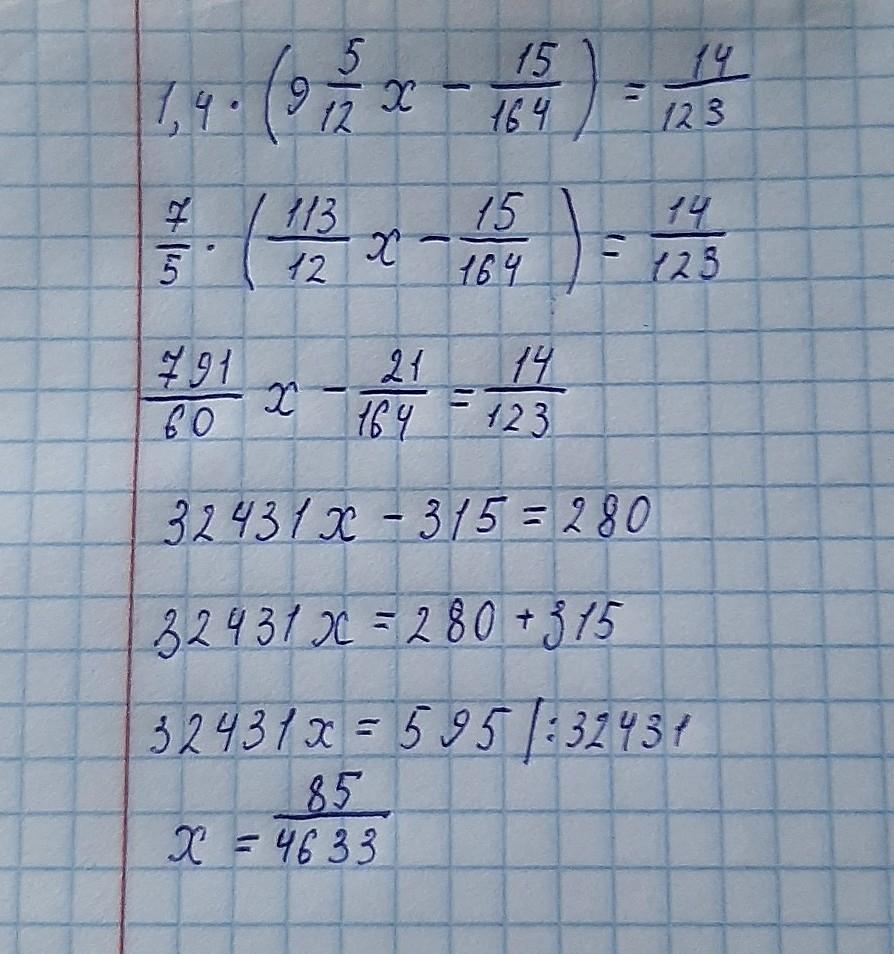 1,4 · (9 5/12 x - 15/164) = 14/123
7/5 · (113/12 x - 15/164) = 14/123
791/60 x - 21/164 = 14/123
32431x - 315 = 280
32431x = 280 + 315
32431x = 595 |:32431
x = 85/4633